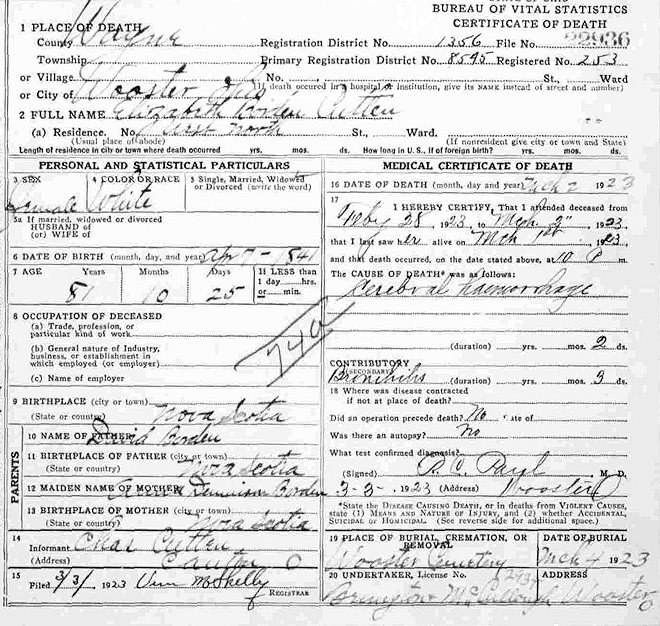 BUREAU OF VITAL STATISTICS
CERTIFICATE OF DEATH
1 PLACE OF DEATH
County Wayne Registration District No. 1356 File No. 22936
Township Primary Registration District No. 8595 Registered No. 253
or Village No. St., Ward
or City of Wooster Ohio (If death occurred in a hospital or institution, give its NAME instead of street and number)
2 FULL NAME Elizabeth Borden Cutten
(a) Residence. No. East North St., Ward.
(Usual place of abode) (If nonresident give city or town and State)
Length of residence in city or town where death occurred yrs. mos. ds. How long in U. S., if of foreign birth? yrs. mos. ds.
PERSONAL AND STATISTICAL PARTICULARS
3 SEX 4 COLOR OR RACE 5 Single, Married, Widowed or Divorced (write the word)
Female White
5a If married, widowed or divorced
HUSBAND of
(or) WIFE of
6 DATE OF BIRTH (month, day, and year) Apr 7 - 1841
7 AGE Years Months Days If LESS than
1 day......hrs.
or......min.
81 10 25
8 OCCUPATION OF DECEASED
(a) Trade, profession, or
particular kind of work
(b) General nature of Industry,
business, or establishment in
which employed (or employer)
(c) Name of employer
74a
9 BIRTHPLACE (city or town)
(State or country) Nova Scotia
PARENTS
10 NAME OF FATHER David Borden
11 BIRTHPLACE OF FATHER (city or town)
(State or country) Nova Scotia
12 MAIDEN NAME OF MOTHER Dennison Borden
13 BIRTHPLACE OF MOTHER (city or town)
(State or country) Nova Scotia
14
Informant Chas Cutten
(Address) Canton O
15
Filed 3/3/, 1923 McSkelly
REGISTRAR
MEDICAL CERTIFICATE OF DEATH
16 DATE OF DEATH (month, day and year) Mch 2 1923
17
I HEREBY CERTIFY, That I attended deceased from
Feby 28, 1923 to Mch 2", 1923
that I last saw her alive on Mch 1st, 1923
and that death occurred, on the date stated above, at 10 P m.
The CAUSE OF DEATH* was as follows:
Cerebral haemorrhage
(duration) yrs. mos. 2 ds.
CONTRIBUTORY
(SECONDARY)
Bronchitis
(duration) yrs. mos. 3 ds.
18 Where was disease contracted
if not at place of death?
Did an operation precede death? No Date of
Was there an autopsy? No
What test confirmed diagnosis?
(Signed) M. D.
3-3-, 1923 (Address) Wooster O
*State the DISEASE CAUSING DEATH, or in deaths from VIOLENT CAUSES,
state (1) MEANS AND NATURE OF INJURY, and (2) whether ACCIDENTAL,
SUICIDAL or HOMICIDAL. (See reverse side for additional space.)
19 PLACE OF BURIAL, CREMATION, OR REMOVAL DATE OF BURIAL
Wooster Cemetery Mch 4 1923
20 UNDERTAKER, License No. ADDRESS
McCullough Wooster O